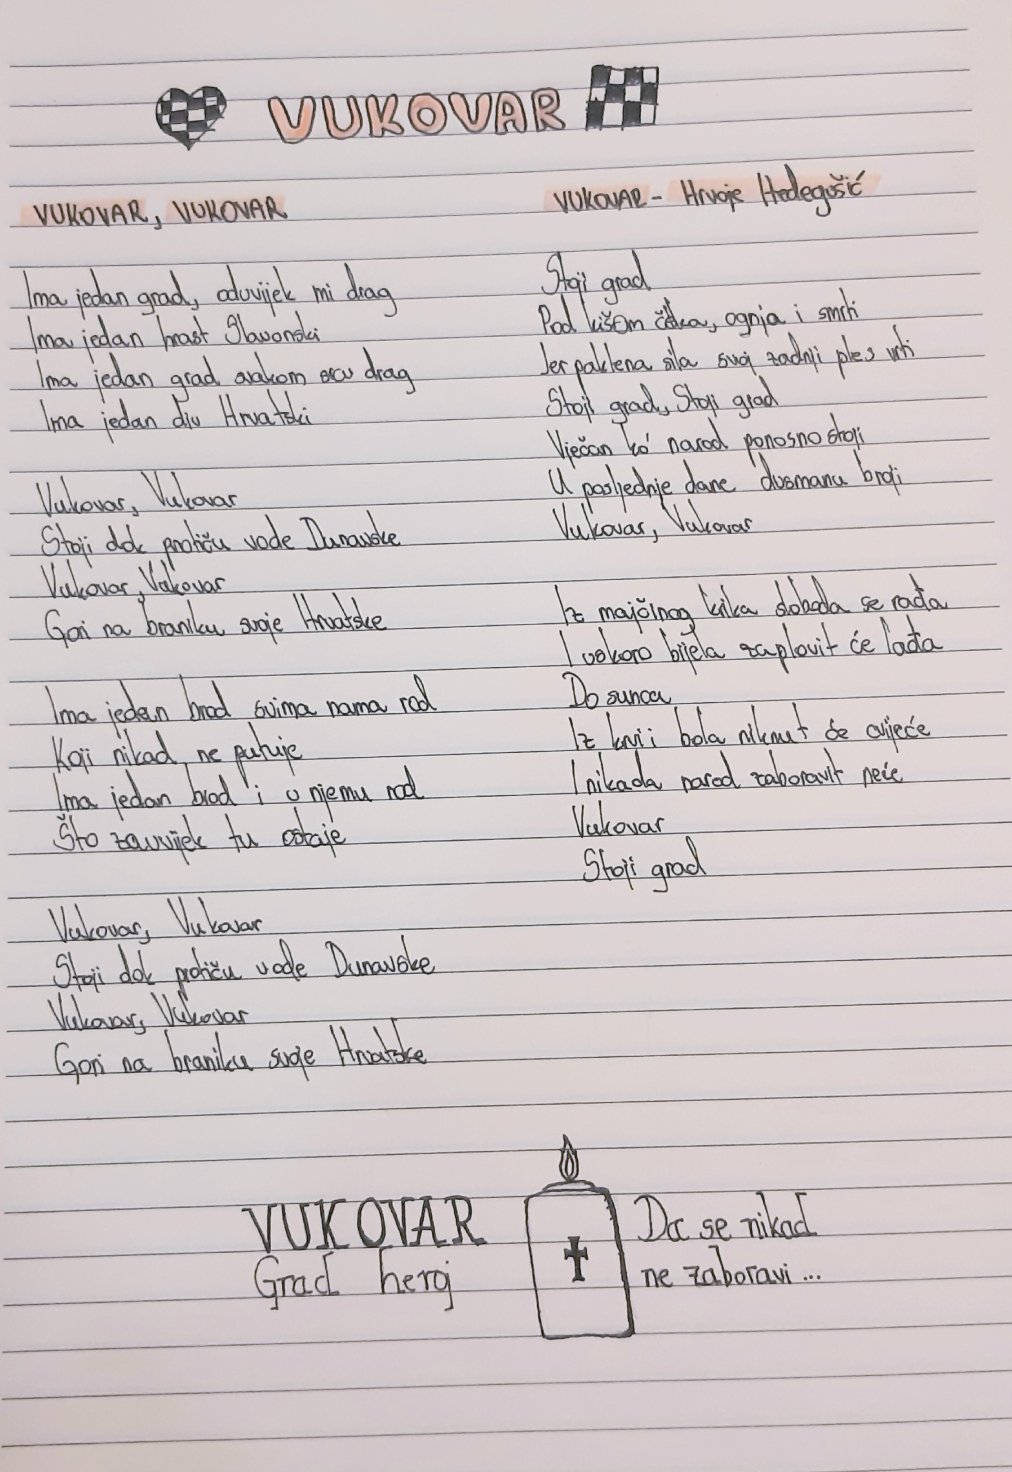 VUKOVAR
VUKOVAR, VUKOVAR
Ima jedan grad, oduvijek mi drag
Ima jedan hrast Slavonski
Ima jedan grad svakom srcu drag
Ima jedan div Hrvatski
Vukovar, Vukovar
Stoji dok protiču vode Dunavske
Vukovar, Vukovar
Gori na braniku svoje Hrvatske
Ima jedan brod svima nama rod
Koji nikad ne putuje
Ima jedan brod i u njemu rod
Što zauvijek tu ostaje
Vukovar, Vukovar
Stoji dok protiču vode Dunavske
Vukovar, Vukovar
Gori na braniku svoje Hrvatske
VUKOVAR - Hrvoje Hedegušić
Stoji grad
Pod kišom čelka, ognja i smrti
Jer paklena sila svoj zadnji ples vrti
Stoji grad, Stoji grad
Vječan ko' narod ponosno stoji
U posljednje dane dusmanu broji
Vukovar, Vukovar
Iz majčinog krika sloboda se rađa
I uskoro bijela zaplovit će lađa
Do sunca
Iz krvi i bola niknut će cvijeće
I nikada narod zaboravit neće
Vukovar
Stoji grad
VUKOVAR
Grad heroj
Da se nikad
ne zaboravi...